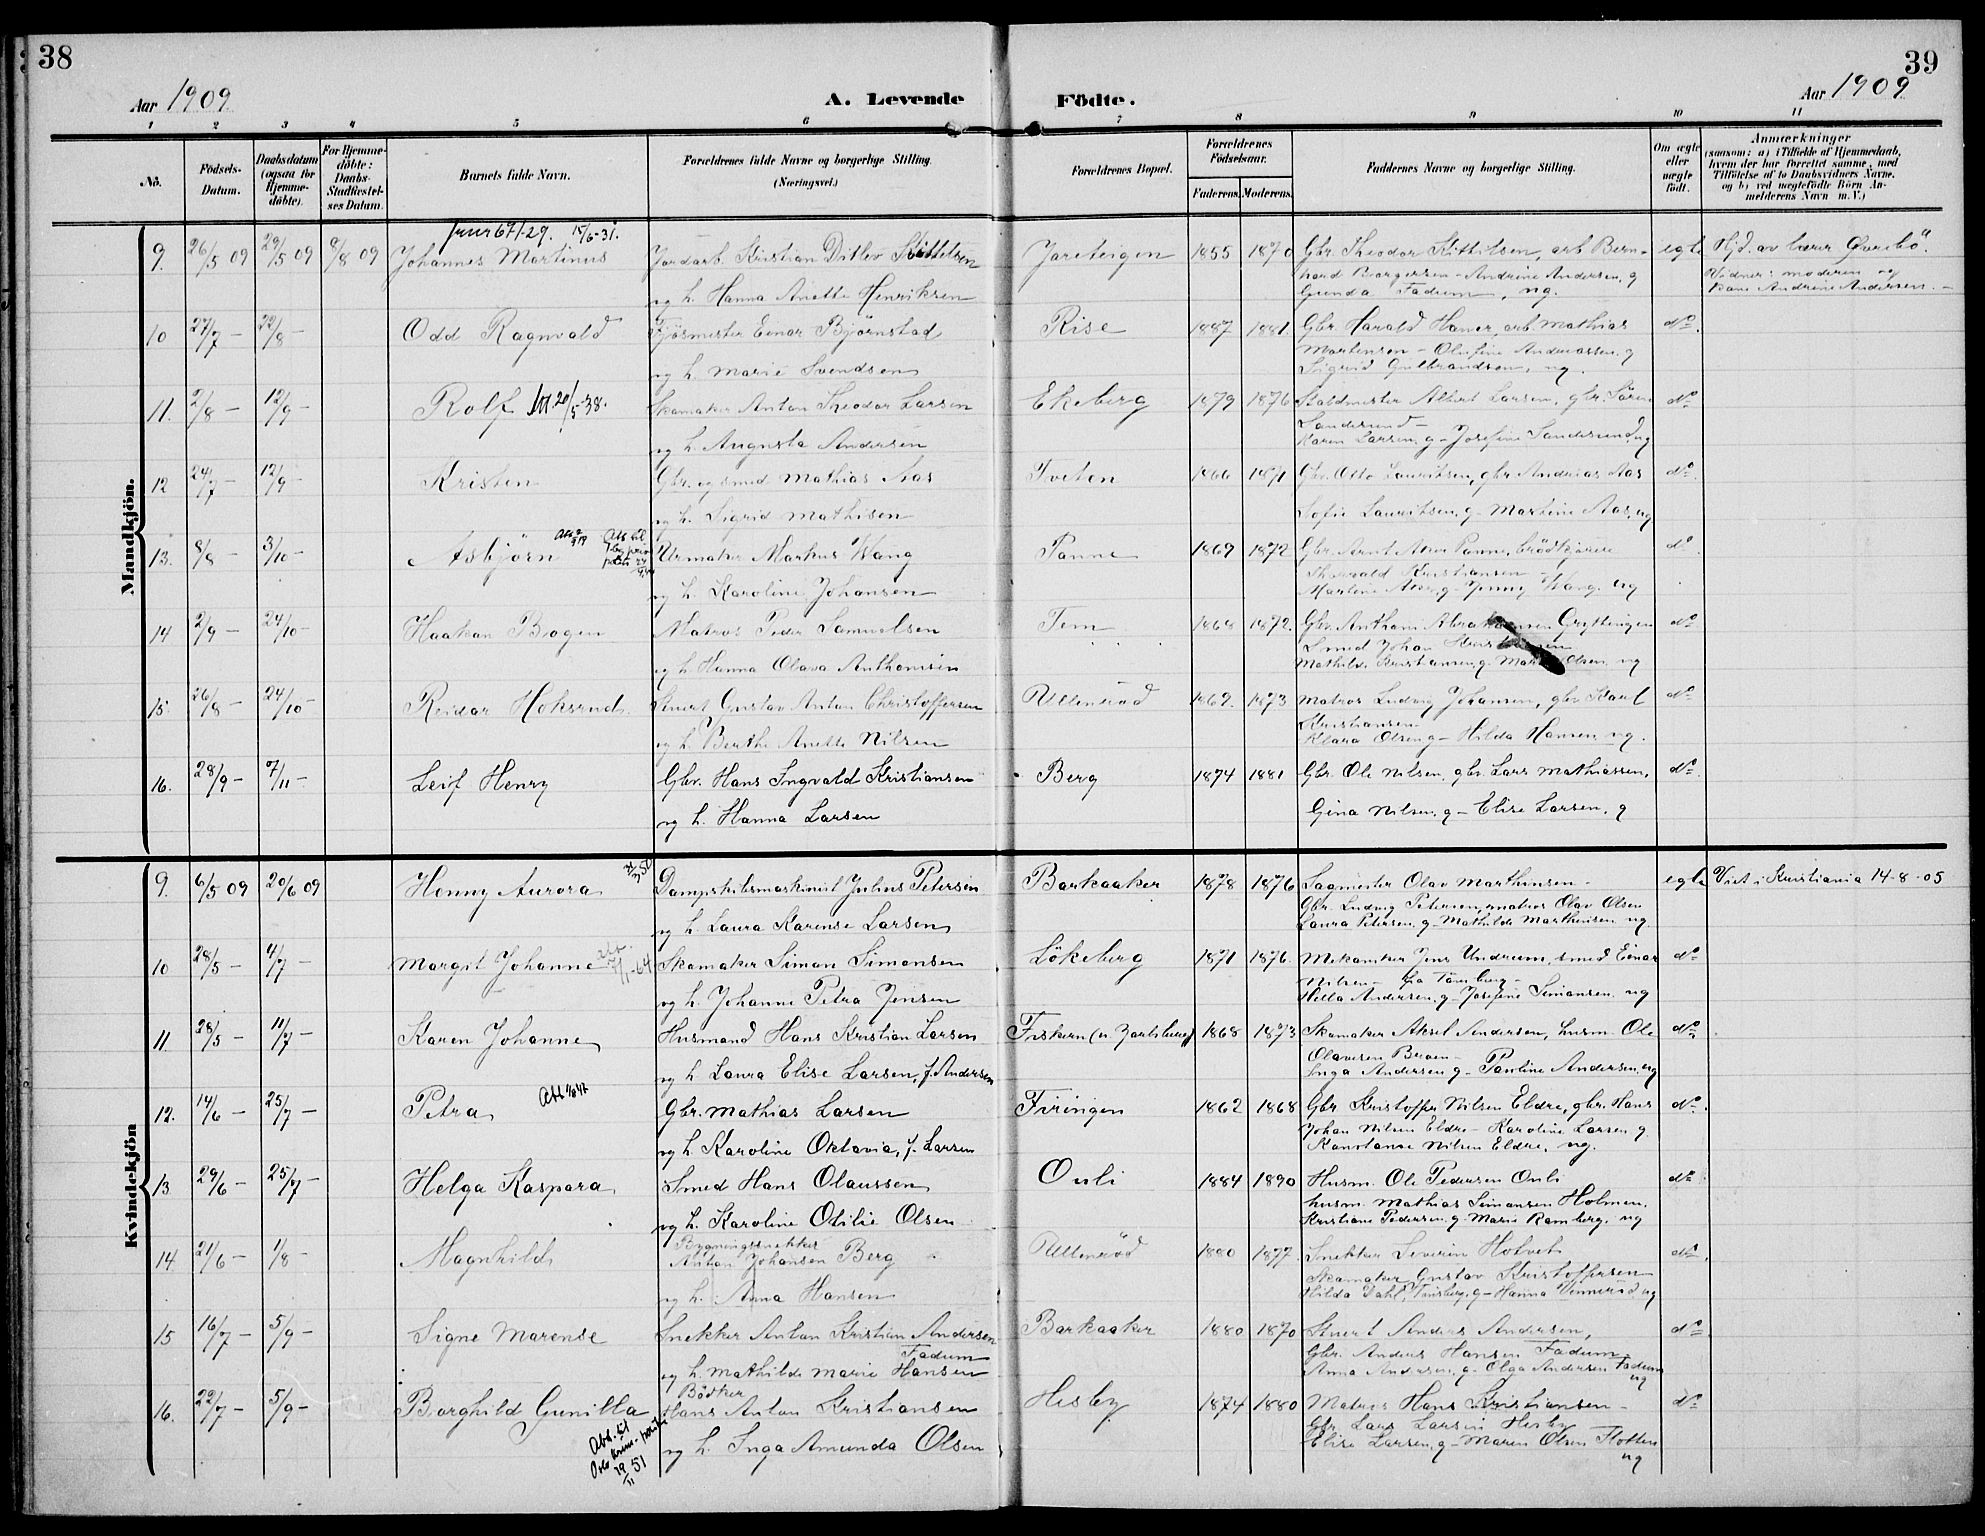 38
39
Aar 1909
A. Levende
Födte.
Aar 1909
1 2 3 4 5 6 7 8 9 10 11
No.
Födsels-Datum.
Daabsdatum (ogsaa for Hjemme-döbte).
For Hjemme-döbte: Daabs-Stadfæstel-ses Datum.
Barnets fulde Navn.
Forældrenes fulde Navne og borgerlige Stilling.
(Næringsvei.)
Forældrenes Bopæl.
Forældrenes Födselsaar.
Faderens. Moderens.
Faddernes Navne og borgerlige Stilling.
Om ægte eller uægte födt.
Anmærkninger
(saasom: a) i Tilfælde af Hjemmedaab, hvem der har forrettet samme, med Tilföielse af to Daabsvidners Navne, og b) ved uægtefödte Börn An-melderens Navn m. V.)
Mandkjön.
15/6-31.
9. 26/5 09 29/5 09 8/8 09 Johannes Martinus Jordarb. Kristian Ditlev Kittelsen Jareteigen 1855 1870 Gbr. Theodor Kittilsen, arb. Bern- egte Hjd. av lærer Øverebö.
og h. Hanna Anette Henriksen hard Borgersen - Andrine Andersen, g Vidner: moderen og
Gunda Fadum, ug. kone Andrine Andersen.
10 27/7 - 22/8 - Odd Ragnvald Fjösmester Einar Björnstad Rise 1887 1881 Gbr. Harald Haner, arb. Mathias do.
og h. Marie Svendsen Martensen - Olufine Andreassen, g
Sigrid Gulbrandsen, ug.
11. 2/8 - 12/9 - Rolf 20/5-38. Skomaker Anton Theodor Larsen Ekeberg 1879 1876 Staldmester Albert Larsen, gbr. Sören do
og h. Augusta Andersen Sandersund -
Karen Larsen, g - Josefine Sandersund, ug
12 24/7 - 12/9 - Kristen Gbr. og smed Mathias Aas Tveten 1866 1871 Gbr. Otto Lauritsen, gbr. Andreas Aas do.
og h. Sigrid Mathisen Sofie Lauritsen, g - Martine Aas, ug
13. 8/8 - 3/10 - Asbjörn Urmaker Markus Wang Panne 1869 1872 Gbr. Arnt Aker Panne, brödkjörer do
og h. Karoline Johansen Thorvald Kristiansen -
Martine Aker, g - Jenny Wang, ug
14 2/9 - 24/10 - Haakon Bogen Matros Peder Samuelsen Tem 1868 1872. Gbr. Anthon Abrahamsen Gryttingen do
og h. Hanna Olava Anthonisen Smed Johan
Mathilde Kristiansen, g - Olsen, ug
15 26/8 - 24/10 - Reidar Hoksrud Stuert Gustav Anton Christoffersen Ullensröd 1869. 1873 Matros Ludvig Johansen, gbr. Karl do
og h. Berthe Anette Nilsen Kristiansen -
Klara Olsen, g - Hilda Hansen, ug.
16. 28/9 - 7/11 - Leif Henry Gbr. Hans Ingvald Kristiansen Berg 1874 1881 Gbr. Ole Nilsen, gbr. Lars Mathiassen, do.
og h. Hanna Larsen Gina Nilsen, g - Elise Larsen, g
Kvindekjön
9. 6/5 09 20/6 09 Henny Aurora Dampskibsmaskinist Julius Petersen Barkaaker 1878 1876 Sagmester Olav Marthinsen - egte Viet i Kristiania 14-8-05
og h. Laura Karense Larsen Gbr. Ludvig Petersen, matros Olav Olsen
Laura Petersen, g - Mathilde Marthinsen, ug
10 28/5 - 4/7 - Margit Johanne Skomaker Simon Simonsen Lökeberg 1871 1876. Mekaniker Jens Undrum, smed Einar do
og h. Johanne Petra Jensen Nilsen - fra Tönsberg -
Hilla Andersen, g - Josefine Simonsen, ug
11 28/5 - 11/7 - Karen Johanne Husmand Hans Kristian Larsen Fiskern (u Jarlsberg) 1868 1873 Skomaker Aksel Andersen, husm. Ole do
og h. Laura Elise Larsen, f. Andersen Olavesen Broen -
Inga Andersen, g - Pauline Andersen, ug
12. 14/6 - 25/7 - Petra Gbr. Mathias Larsen Firingen 1862 1868 Gbr. Kristoffer Nilsen Eldre, gbr. Hans do.
og h. Karoline Oktavia, f. Larsen Johan Nilsen Eldre - Karoline Larsen, g
Konstanse Nilsen Eldre, ug.
13 29/6 - 25/7 - Helga Kaspara Smed Hans Olaussen Onli 1884 1890 Husm. Ole Pedersen Onli do
og h. Karoline Otilie Olsen husm. Mathias Simonsen Holmen,
Kristiane Pedersen, g - Marie Ramberg, ug
14 21/6 - 1/8 - Magnhild Bygningssnekker
Anton Johansen Berg Ullensröd 1880 1877. Snekker Severin Hotvet do.
og h. Anna Hansen Skomaker Gustav Kristoffersen
Hilda Dahl, Tönsberg, g - Hanna Vinneröd, ug
15 16/7 - 5/9 - Signe Marense Snekker Anton Kristian Andersen Barkaaker 1880 1870 Stuert Anders Andersen, do
Fadum Gbr. Anders Hansen Fadum -
og h. Mathilde Marie Hansen Anna Andersen, g - Olga Andersen Fadum
ug
16. 22/7 - 5/9 - Borghild Gunilla Bödker
Hans Anton Kristiansen Hesby 1874 1880 Matros Hans Kristiansen - do
og h. Inga Amunda Olsen Gbr. Lars Larsen Hesby
Elise Larsen, g - Maren Olsen Flotten
ug